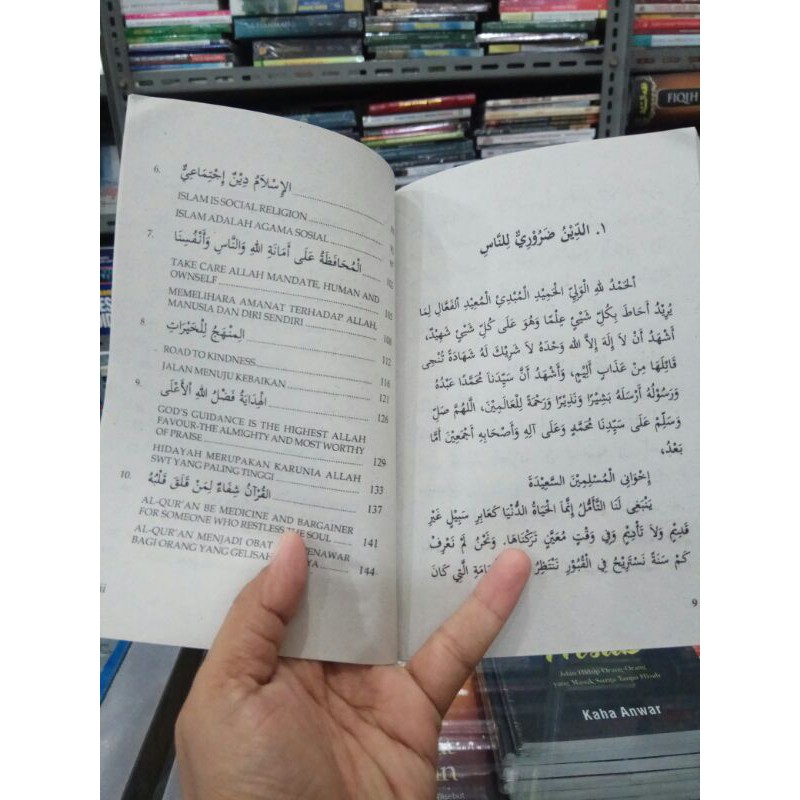 6. الإِسْلَامُ دِيْنٌ إِجْتِمَاعِيٌّ
ISLAM IS SOCIAL RELIGION
ISLAM ADALAH AGAMA SOSIAL
7. الْمُحَافَظَةُ عَلَى أَمَانَةِ اللهِ وَالنَّاسِ وَأَنْفُسِنَا 102
TAKE CARE ALLAH MANDATE, HUMAN AND
OWNSELF 105
MEMELIHARA AMANAT TERHADAP ALLAH,
MANUSIA DAN DIRI SENDIRI 108
8. الْمِنْهَجُ لِلْخَيْرَاتِ 112
ROAD TO KINDNESS 116
JALAN MENUJU KEBAIKAN 121
9. الْهِدَايَةُ فَضْلُ اللهِ الْأَعْلَى 126
GOD'S GUIDANCE IS THE HIGHEST ALLAH
FAVOUR-THE ALMIGHTY AND MOST WORTHY
OF PRAISE 129
HIDAYAH MERUPAKAN KARUNIA ALLAH
SWT YANG PALING TINGGI 133
10. الْقُرْآنُ شِفَاءٌ لِمَنْ قَلَقَ قَلْبُهُ 137
AL-QUR'AN BE MEDICINE AND BARGAINER
FOR SOMEONE WHO RESTLESS THE SOUL 141
AL-QUR'AN MENJADI OBAT PENAWAR
BAGI ORANG YANG GELISAH 144
١. الدِّيْنُ ضَرُوْرِيٌّ لِلنَّاسِ
اَلْحَمْدُ لِلّٰهِ الْوَلِيِّ الْحَمِيْدِ الْمُبْدِئِ الْمُعِيْدِ الْفَعَّالِ لِمَا
يُرِيْدُ أَحَاطَ بِكُلِّ شَيْئٍ عِلْمًا وَهُوَ عَلَى كُلِّ شَيْئٍ شَهِيْدٌ،
أَشْهَدُ أَنْ لَا إِلَهَ إِلَّا اللهُ وَحْدَهُ لَا شَرِيْكَ لَهُ شَهَادَةً تُنْجِى
قَائِلَهَا مِنْ عَذَابٍ أَلِيْمٍ، وَأَشْهَدُ أَنَّ سَيِّدَنَا مُحَمَّدًا عَبْدُهُ
وَرَسُوْلُهُ أَرْسَلَهُ بَشِيْرًا وَنَذِيْرًا وَرَحْمَةً لِلْعَالَمِيْنَ، اللّٰهُمَّ صَلِّ
وَسَلِّمْ عَلَى سَيِّدِنَا مُحَمَّدٍ وَعَلَى آلِهِ وَأَصْحَابِهِ أَجْمَعِيْنَ أَمَّا
بَعْدُ،
إِخْوَانِى الْمُسْلِمِيْنَ السَّعِيْدَةَ
يَنْبَغِى لَنَا التَّأَمُّلُ إِنَّمَا الْحَيَاةُ الدُّنْيَا كَعَابِرِ سَبِيْلٍ غَيْرَ
قَدِيْمٍ وَلَا تَأْدِيْمٍ وَفِي وَقْتٍ مُعَيَّنٍ تَرَكْنَاهَا. وَنَحْنُ لَمْ نَعْرِفْ
كَمْ سَنَةً نَسْتَرِيْحُ فِي الْقُبُوْرِ نَنْتَظِرُ الَّتِي كَانَ
9
FIQIH
Kaha Anwar